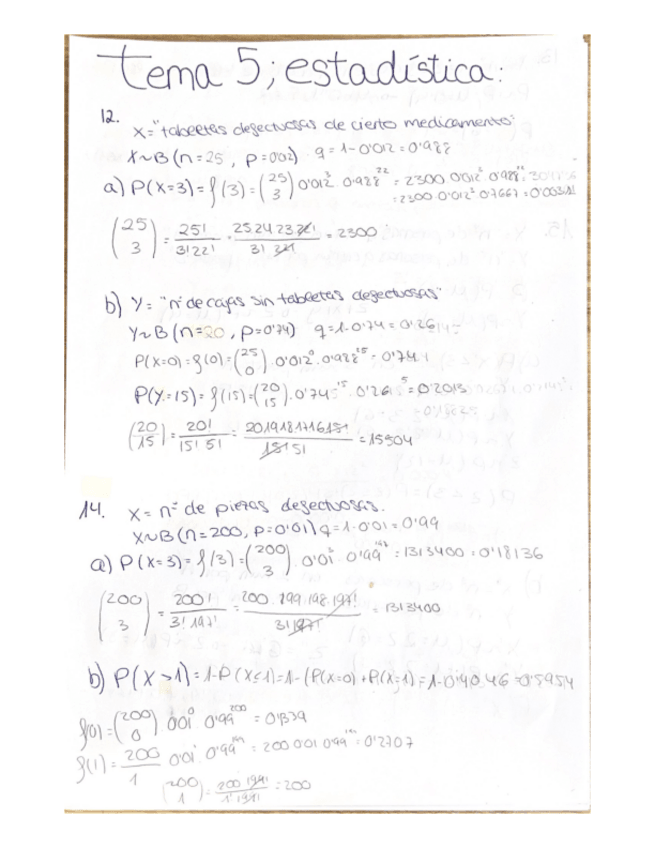 tema 5; estadística:
12.
X="tabletas defectuosas de cierto medicamento"
X~B(n=25, p=0'012) q=1-0'012=0'988
a) P(X=3)=f(3)=(25 3) 0'012³·0'988²² = 2300·0'012³·0'988²²
=2300·0'012³·0'7667=0'0031
(25 3) = 25!/3!22! = 25·24·23·22!/3!·22! = 2300
b) Y= "nº de cajas sin tabletas defectuosas"
Y~B(n=20, p=0'74) q=1-0'74=0'26
P(X=0)=f(0)=(25 0)·0'012⁰·0'988²⁵=0'74
P(Y=15)=f(15)=(20 15)·0'74¹⁵·0'26⁵=0'2013
(20 15)=20!/15!5!=20·19·18·17·16·15!/15!5!=15504
14. X= nº de piezas defectuosas.
X~B(n=200, p=0'01) q=1-0'01=0'99
a) P(X=3)=f(3)=(200 3)·0'01³·0'99¹⁹⁷=1313400=0'18136
(200 3) = 200!/3!197! = 200·199·198·197!/3!197! = 1313400
b) P(X>1)=1-P(X≤1)=1-(P(X=0)+P(X=1)=1-0'4046=0'5954
f(0)=(200 0)·0'01⁰·0'99²⁰⁰=0'1339
f(1)=200/1 0'01¹·0'99¹⁹⁹=200·0'01·0'99¹⁹⁹=0'2707
(200 1)=200·199!/1!199!=200